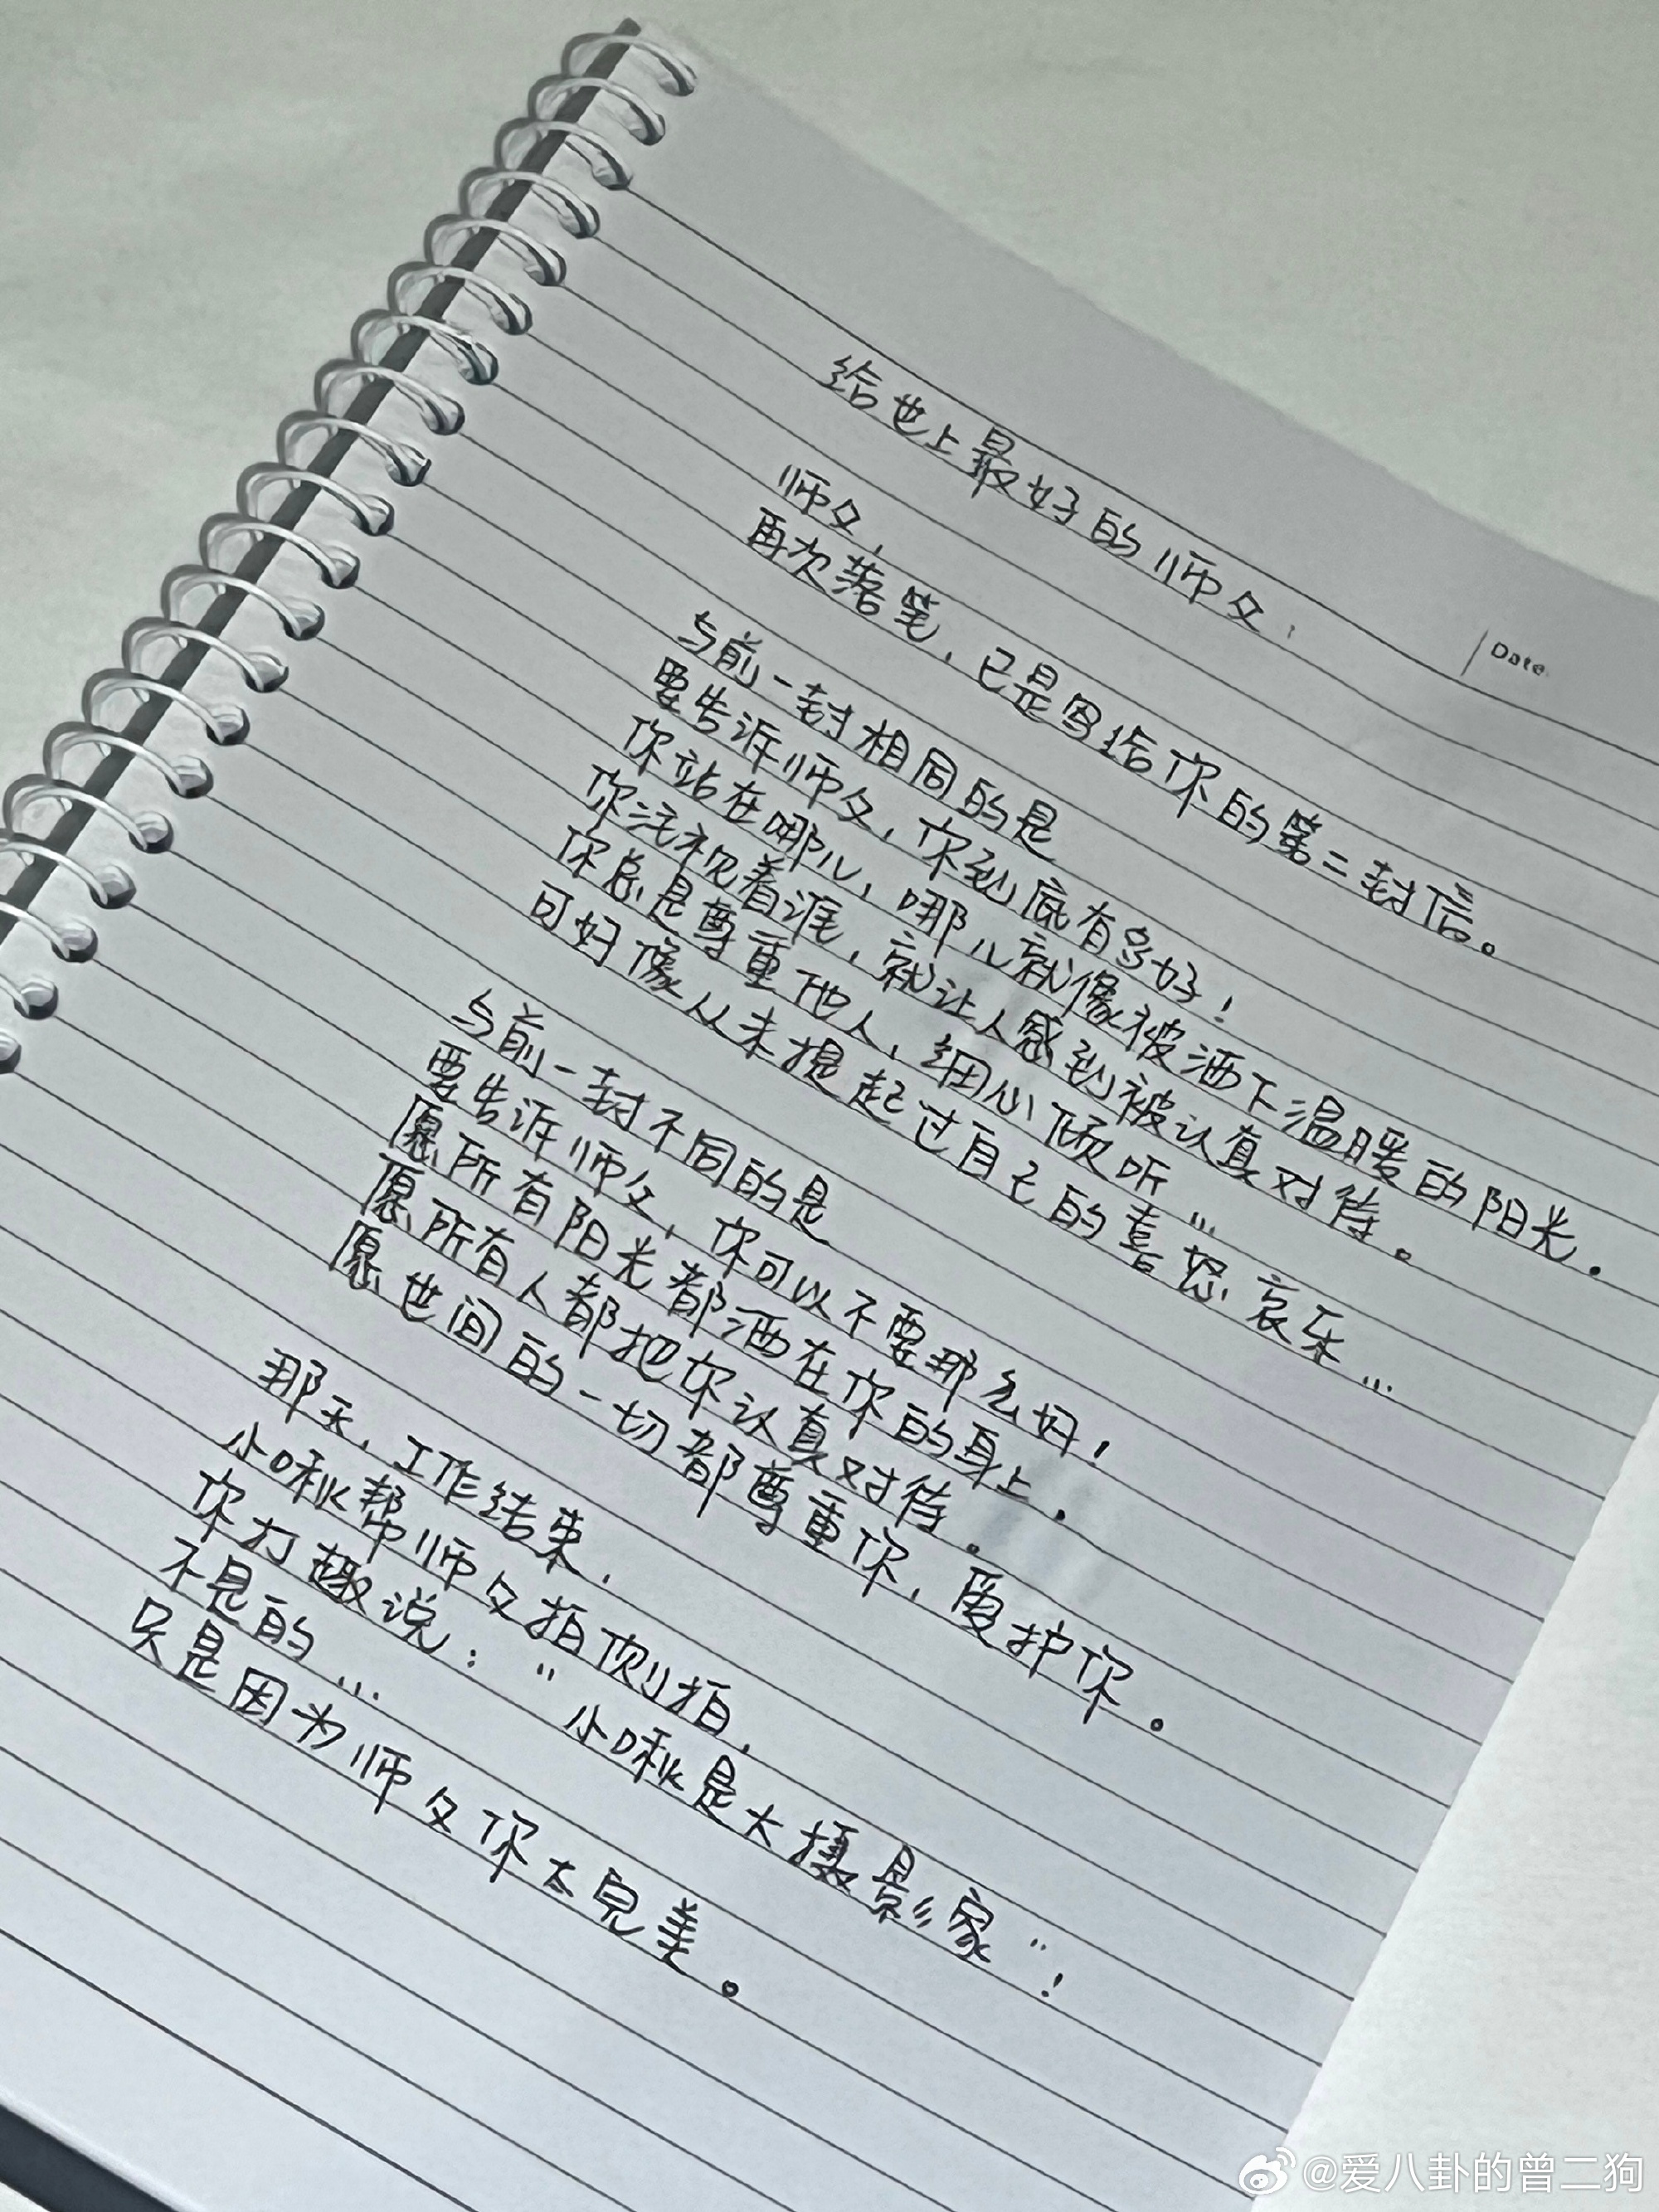 Date.
给世上最好的师父：
师父，
再次落笔，已是写给你的第二封信。
与前一封相同的是
要告诉师父，你到底有多好！
你站在哪儿，哪儿就像被洒下温暖的阳光．
你注视着谁，就让人感到被认真对待。
你总是尊重他人，细心倾听…
可好像从未提起过自己的喜怒哀乐…
与前一封不同的是
要告诉师父，你可以不要那么好，
愿所有阳光都洒在你的身上．
愿所有人都把你认真对待。
愿世间的一切都尊重你，爱护你。
那天，工作结束，
小啾帮师父拍侧拍，
你打趣说：“小啾是大摄影家”！
不是的…
只是因为师父你太完美。
@爱八卦的曾二狗